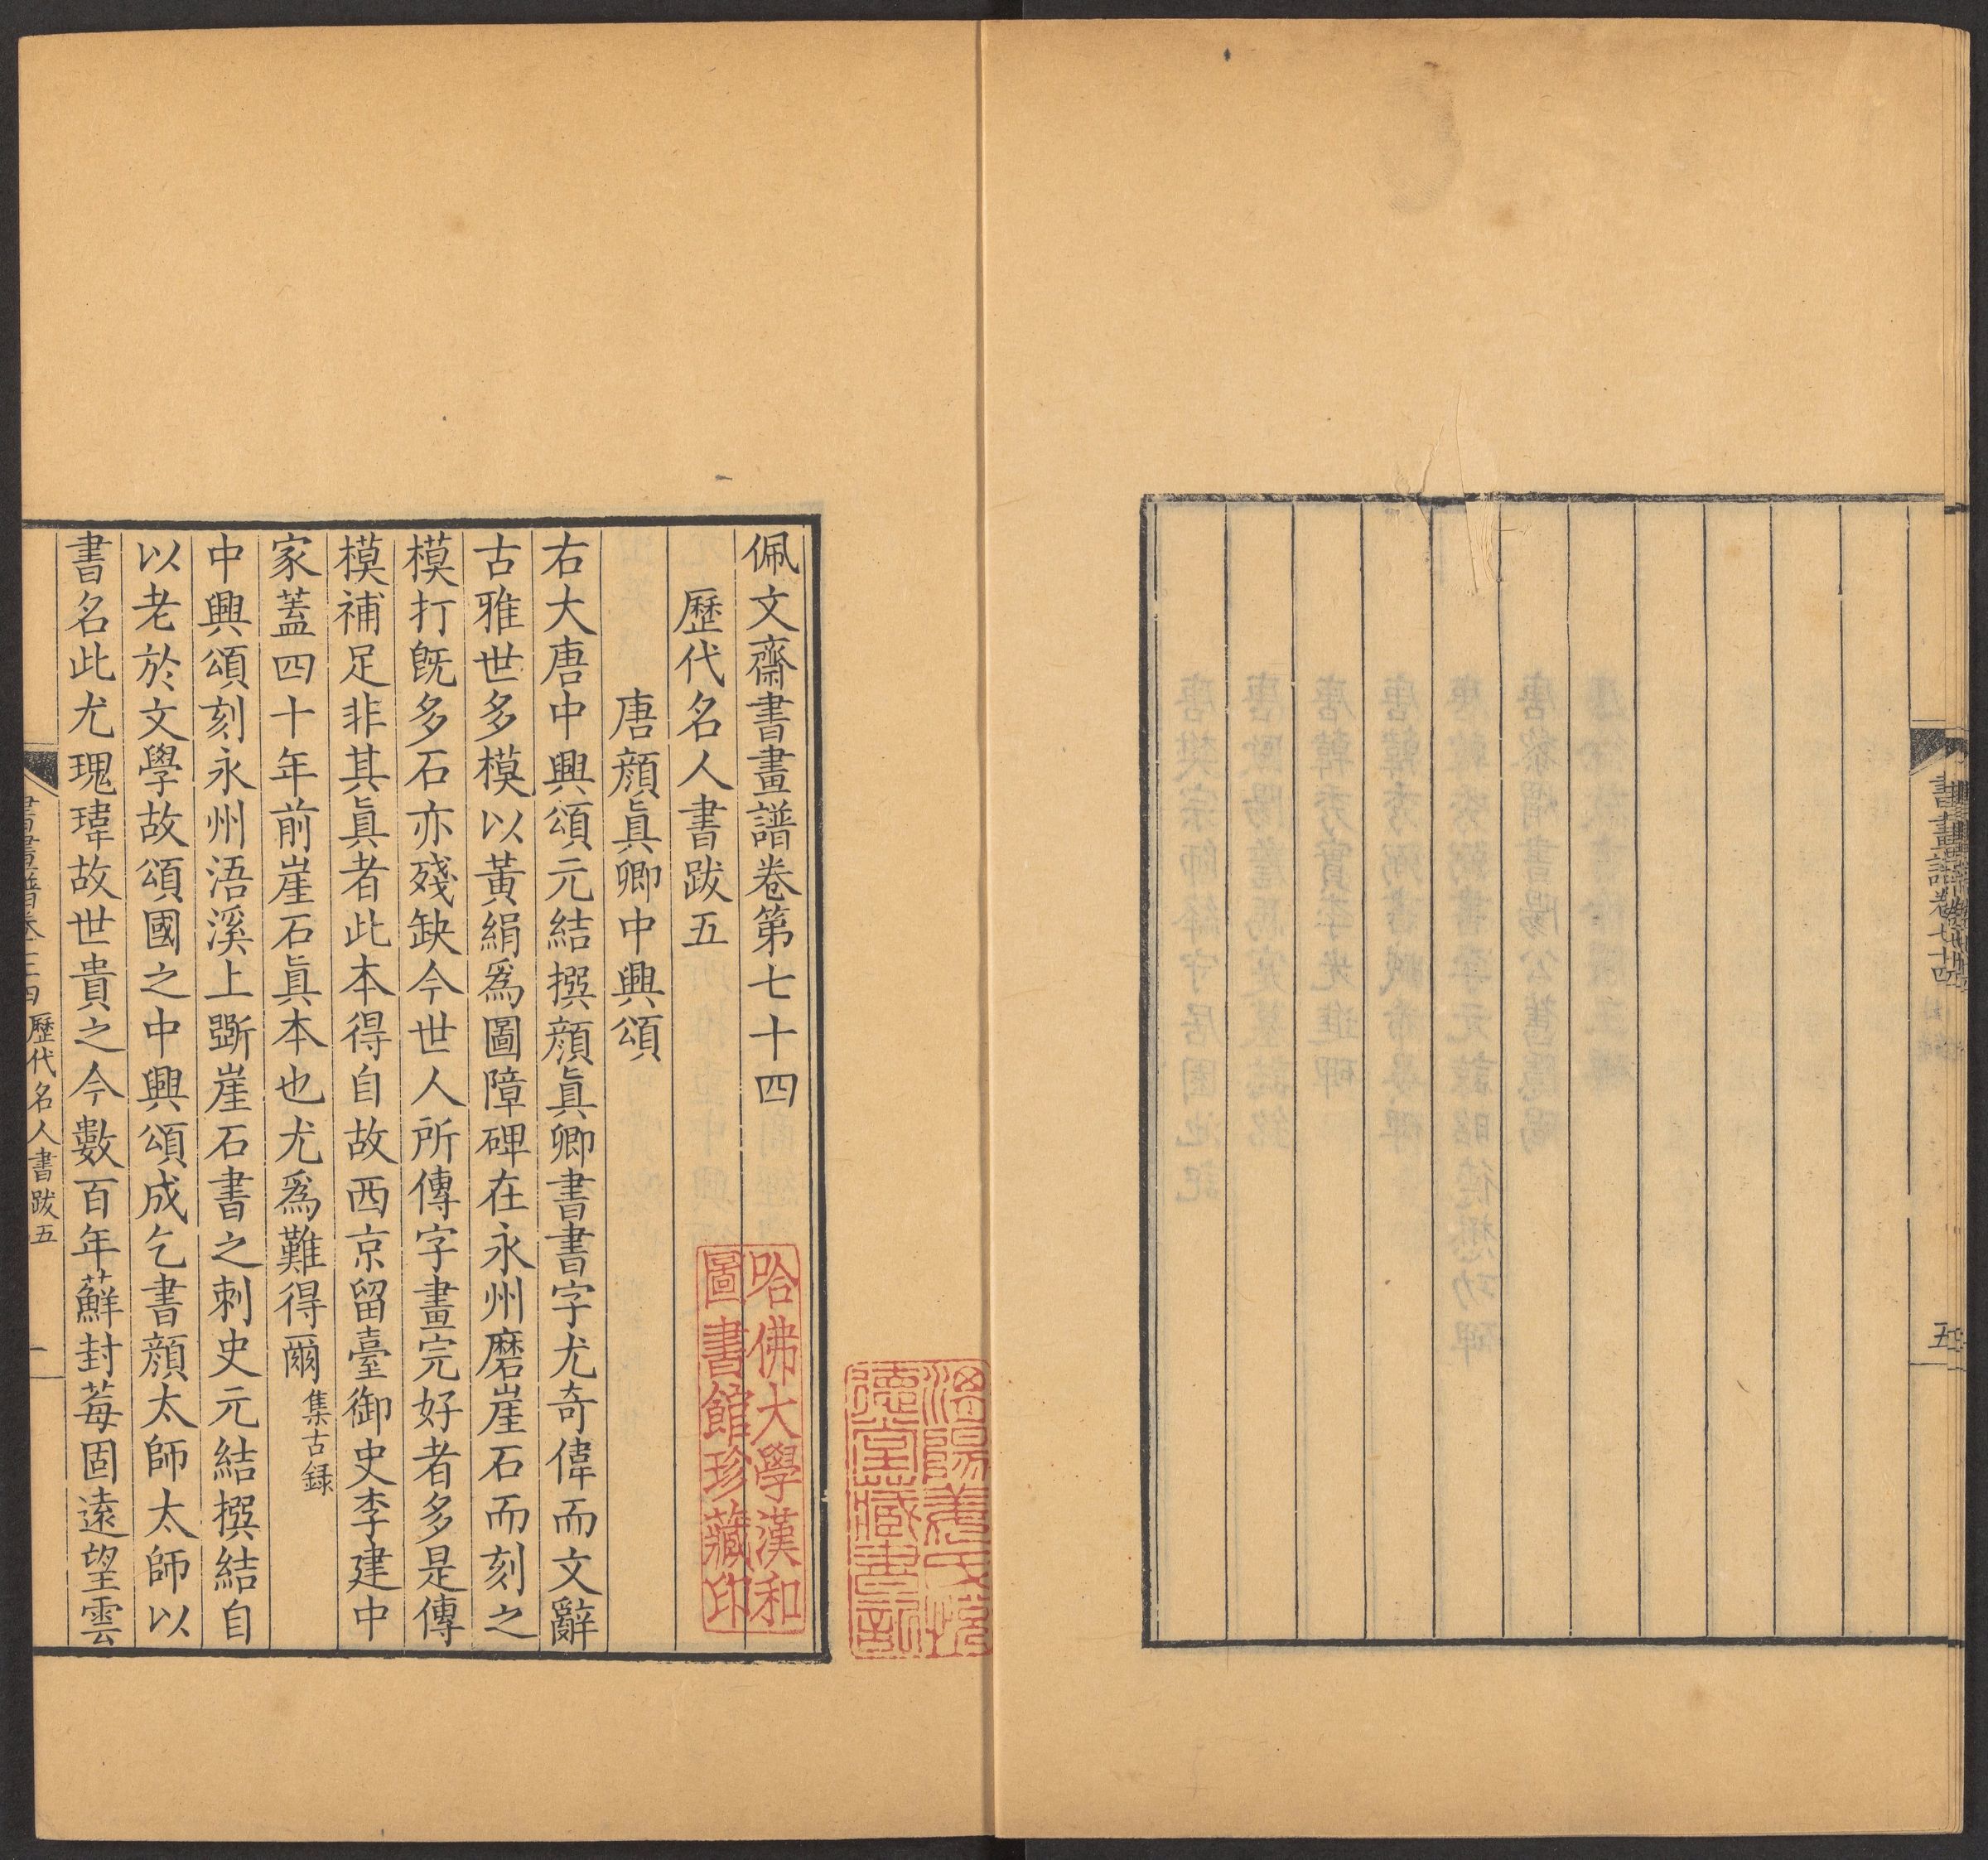 書畫譜卷七十四
五
佩文齋書畫譜卷第七十四
歷代名人書跋五
唐顏眞卿中興頌
右大唐中興頌元結撰顏眞卿書書字尤奇偉而文辭
古雅世多模以黃絹爲圖障碑在永州磨崖石而刻之
模打旣多石亦殘缺今世人所傳字畫完好者多是傳
模補足非其眞者此本得自故西京留臺御史李建中
家蓋四十年前崖石眞本也尤爲難得爾集古録
中興頌刻永州浯溪上斲崖石書之刺史元結撰結自
以老於文學故頌國之中興頌成乞書顏太師太師以
書名此尤瑰瑋故世貴之今數百年蘚封莓固遠望雲
歷代名人書跋五
一
哈佛大學漢和
圖書館珍藏印
德堂藏書記